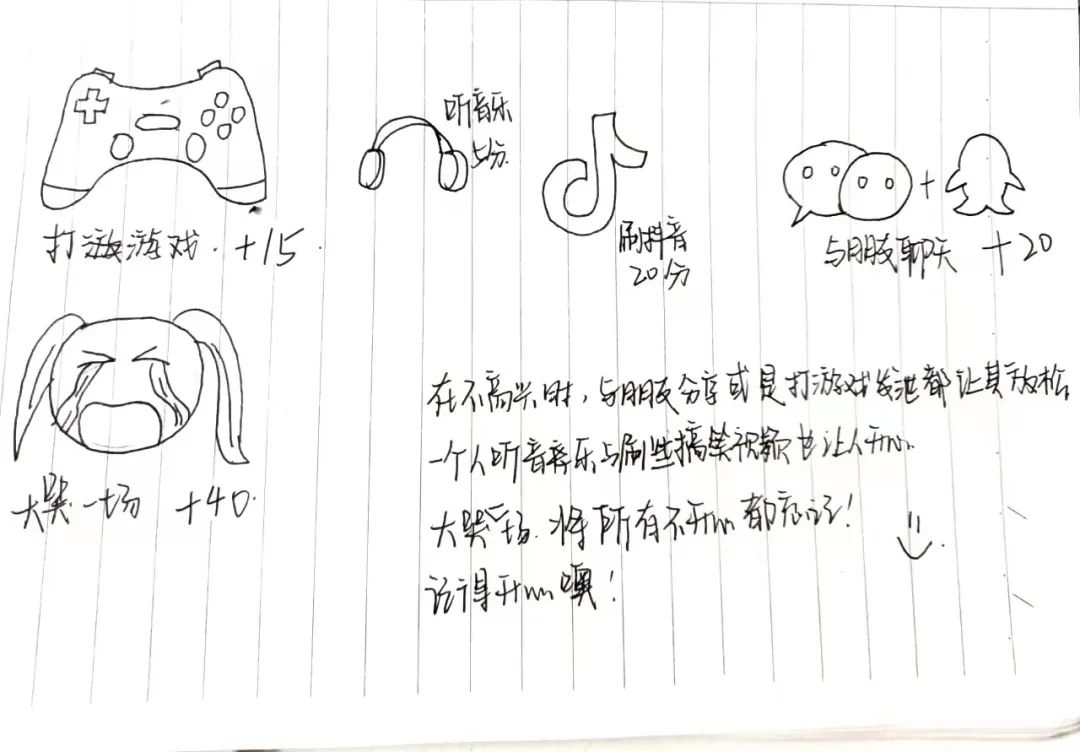 听音乐
5分.
打游游戏. +15.
刷抖音
20分
与朋友聊天 +20
+
大哭一场 +40.
在不高兴时,与朋友分享或是打游戏发泄都让其放松
一个人听音乐与刷些搞笑视频也让人开心.
大哭一场.将所有不开心都忘记!
记得开心噢!